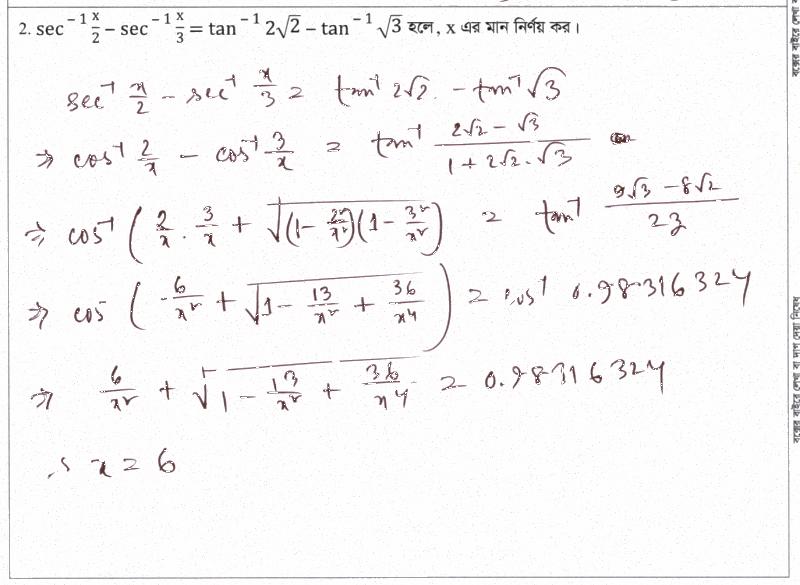 2. sec⁻¹ x/2 – sec⁻¹ x/3 = tan⁻¹ 2√2 – tan⁻¹ √3 হলে, x এর মান নির্ণয় কর।
sec⁻¹ x/2 – sec⁻¹ x/3 = tan⁻¹ 2√2 . – tan⁻¹ √3
⇒ cos⁻¹ 2/x – cos⁻¹ 3/x = tan⁻¹ (2√2 – √3)/(1 + 2√2 . √3)
⇒ cos⁻¹ (2/x . 3/x + √((1 – 2²/x²)(1 – 3²/x²))) = tan⁻¹ (9√3 – 8√2)/23
⇒ cos⁻¹ (6/x² + √(1 – 13/x² + 36/x⁴)) = cos⁻¹ 0.98316324
⇒ 6/x² + √(1 – 13/x² + 36/x⁴) = 0.98316324
∴ x = 6
বক্সের বাইরে লেখা বা দাগ দেয়া নিষেধ
বক্সের বাইরে লেখা ব